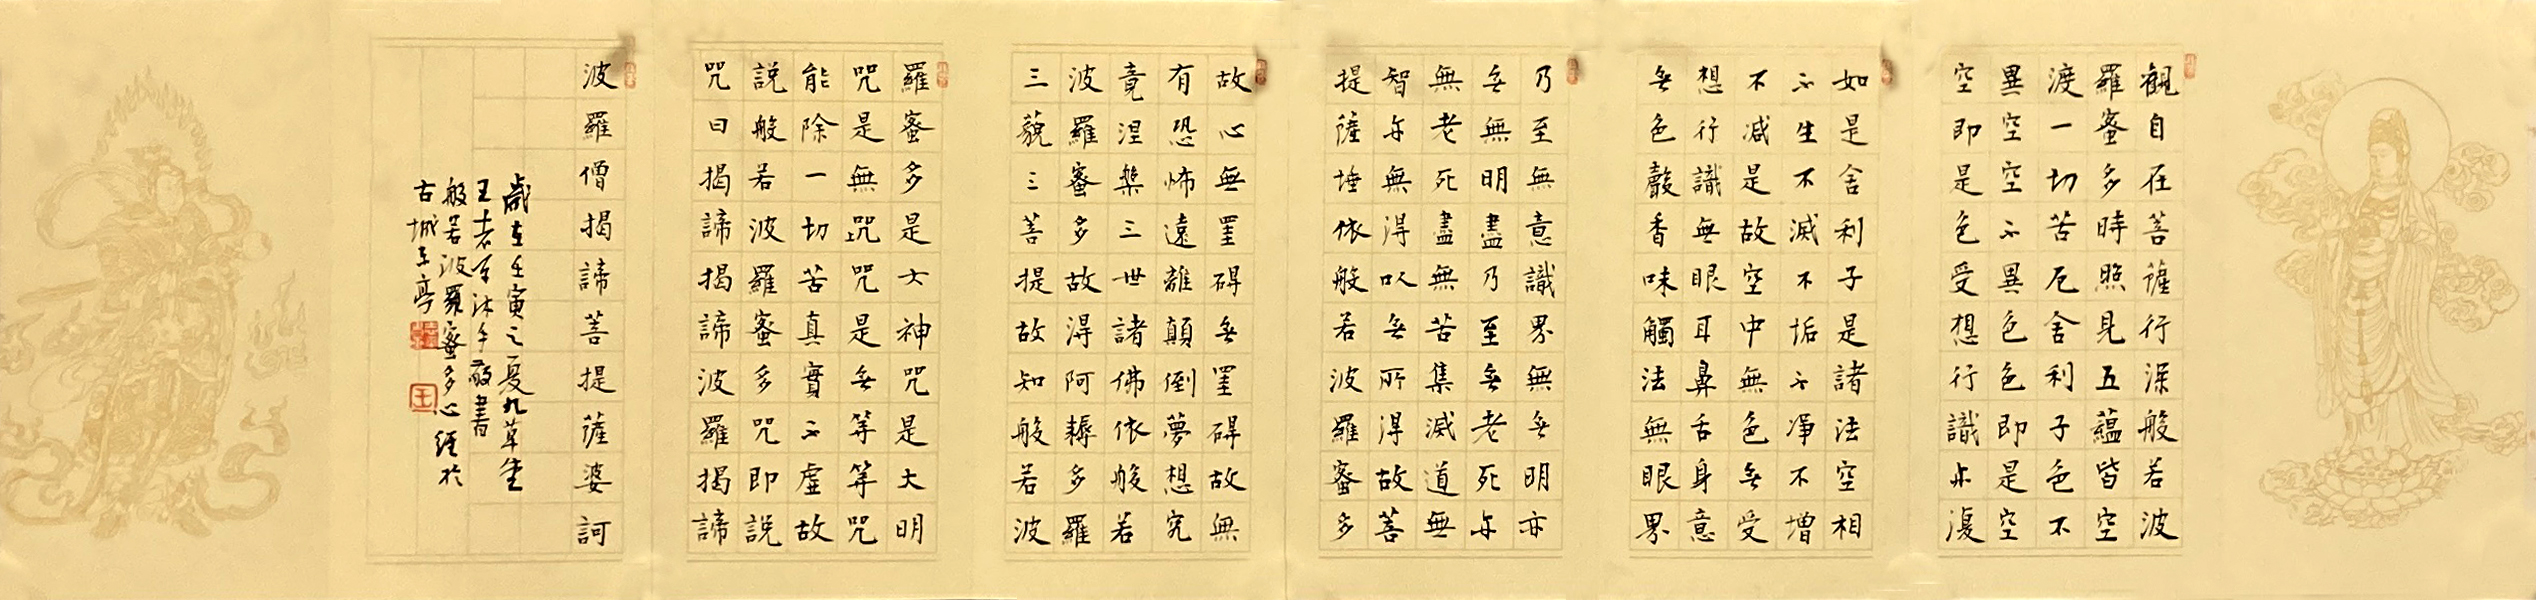 觀自在菩薩行深般若波
羅蜜多時照見五蘊皆空
渡一切苦厄舍利子色不
異空空不異色色即是空
空即是色受想行識亦復
如是舍利子是諸法空相
不生不滅不垢不淨不增
不減是故空中無色無受
想行識無眼耳鼻舌身意
無色聲香味觸法無眼界
乃至無意識界無無明亦
無無明盡乃至無老死亦
無老死盡無苦集滅道無
智亦無得以無所得故菩
提薩埵依般若波羅蜜多
故心無罣碍無罣碍故無
有恐怖遠離顛倒夢想究
竟涅槃三世諸佛依般若
波羅蜜多故得阿耨多羅
三藐三菩提故知般若波
羅蜜多是大神咒是大明
咒是無上咒是無等等咒
能除一切苦真實不虛故
說般若波羅蜜多咒即說
咒曰揭諦揭諦波羅揭諦
波羅僧揭諦菩提薩婆訶
歲在壬寅之夏九草堂
王老軍沐手敬書
般若波羅蜜多心經於
古城
王